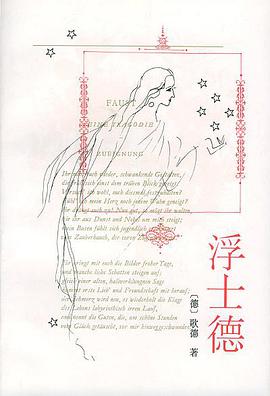 FAUST
EINE TRAGÖDIE
ZUEIGNUNG
Ihr naht euch wieder, schwankende Gestalten,
die früh sich einst dem trüben Blick gezeigt.
Versuch ich wohl, euch diesmal festzuhalten?
Fühl ich mein Herz noch jenem Wahn geneigt?
Ihr drängt euch zu! Nun gut, so mögt ihr walten,
wie ihr aus Dunst und Nebel um mich steigt;
mein Busen fühlt sich jugendlich
vom Zauberhauch, der euren
Ihr bringt mit euch die Bilder froher Tage,
und manche liebe Schatten steigen auf;
gleich einer alten, halbverklungnen Sage
kommt erste Lieb' und Freundschaft mit herauf;
der Schmerz wird neu, es wiederholt die Klage
des Lebens labyrinthisch irren Lauf,
und nennt die Guten, die, um schöne Stunden
vom Glück getäuscht, vor mir hinweg
浮士德
〔德〕歌德 著